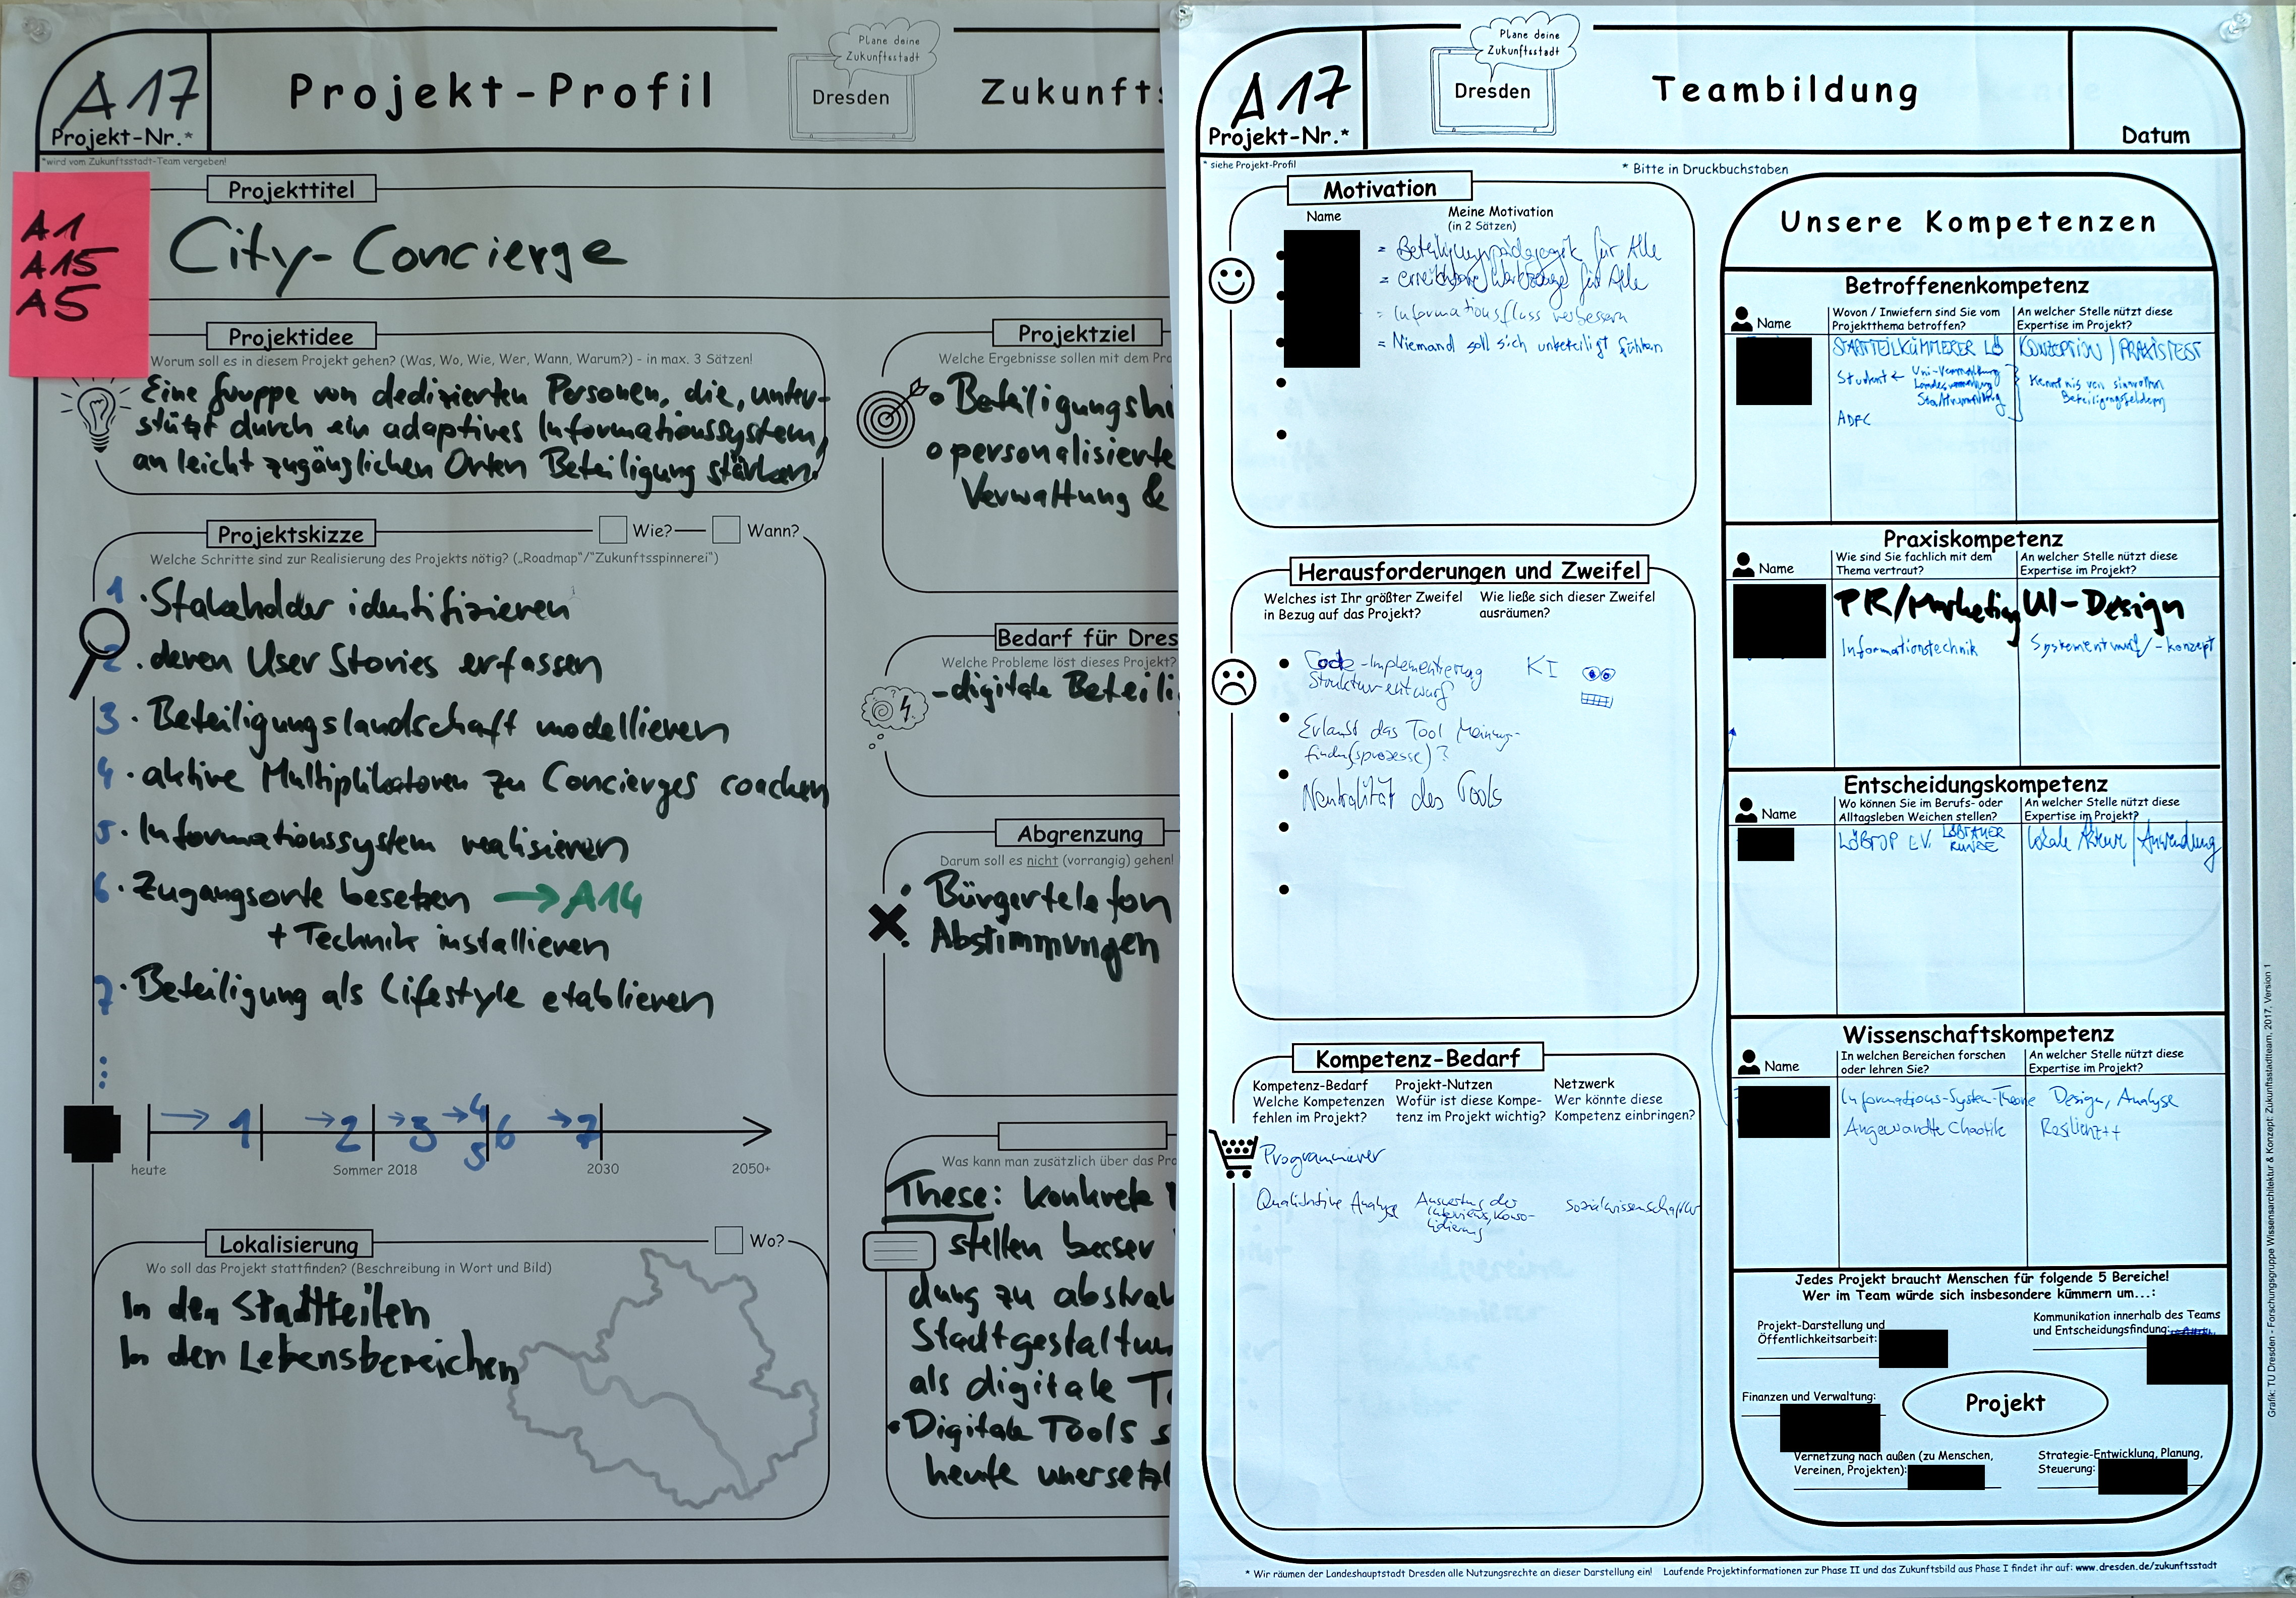 A17
Projekt-Nr.*
*wird vom Zukunftsstadt-Team vergeben!
Projekt-Profil
Plane deine
Zukunftsstadt
Dresden
Zukunfts
A1
A15
A5
Projekttitel
City-Concierge
Projektidee
Worum soll es in diesem Projekt gehen? (Was, Wo, Wie, Wer, Wann, Warum?) - in max. 3 Sätzen!
Eine Gruppe von dedizierten Personen, die, unter-
stützt durch ein adaptives Informationssystem,
an leicht zugänglichen Orten Beteiligung stärken.
Projektskizze
Wie?
Wann?
Welche Schritte sind zur Realisierung des Projekts nötig? („Roadmap“/“Zukunftsspinnerei“)
1 . Stakeholder identifizieren
2 . deren User Stories erfassen
3 . Beteiligungslandschaft modellieren
4 . aktive Multiplikatoren zu Concierges coachen
5 . Informationssystem realisieren
6 . Zugangsorte besetzen → A14
+ Technik installieren
7 . Beteiligung als Lifestyle etablieren
→ 1 → 2 → 3 → 4 5 6 → 7
heute
Sommer 2018
2030
2050+
Lokalisierung
Wo?
Wo soll das Projekt stattfinden? (Beschreibung in Wort und Bild)
In den Stadtteilen
In den Lebensbereichen
Projektziel
Welche Ergebnisse sollen mit dem Pro
Beteiligungshi
personalisierte
Verwaltung &
Bedarf für Dres
Welche Probleme löst dieses Projekt?
- digitale Beteili
Abgrenzung
Darum soll es nicht (vorrangig) gehen!
Bürgertelefon
Abstimmungen
Was kann man zusätzlich über das Pro
These: konkrete
stellen besser
dung zu abstrak
Stadtgestaltun
als digitale T
Digitale Tools s
heute unersetzl
A17
Projekt-Nr.*
* siehe Projekt-Profil
Plane deine
Zukunftsstadt
Dresden
Teambildung
Datum
* Bitte in Druckbuchstaben
Motivation
Name
Meine Motivation
(in 2 Sätzen)
= Beteiligungspädagogik für Alle
= erreichbare Werkzeuge für Alle
= Informationsfluss verbessern
= Niemand soll sich unbeteiligt fühlen
Herausforderungen und Zweifel
Welches ist Ihr größter Zweifel
in Bezug auf das Projekt?
Wie ließe sich dieser Zweifel
ausräumen?
Code-Implementierung
Strukturentwurf
KI
Erlaubt das Tool Meinungs-
findu(sprozesse)?
Neutralität des Tools
Kompetenz-Bedarf
Kompetenz-Bedarf
Welche Kompetenzen
fehlen im Projekt?
Projekt-Nutzen
Wofür ist diese Kompe-
tenz im Projekt wichtig?
Netzwerk
Wer könnte diese
Kompetenz einbringen?
Programmierer
Qualitative Analyse
Auswertung der
Interviews, Konso-
lidierung
Sozialwissenschaftler
Unsere Kompetenzen
Betroffenenkompetenz
Name
Wovon / Inwiefern sind Sie vom
Projektthema betroffen?
An welcher Stelle nützt diese
Expertise im Projekt?
STADTTEILKÜMMERER LÖ
KONZEPTION / PRAXISTEST
Student ← Uni-Verwaltung
Landesverwaltung
Stadtverwaltung
Kenntnis von sinnvollen
Beteiligungsfeldern
ADFC
Praxiskompetenz
Name
Wie sind Sie fachlich mit dem
Thema vertraut?
An welcher Stelle nützt diese
Expertise im Projekt?
PR/Marketing
UI-Design
Informationstechnik
Systementwurf/-konzept
Entscheidungskompetenz
Name
Wo können Sie im Berufs- oder
Alltagsleben Weichen stellen?
An welcher Stelle nützt diese
Expertise im Projekt?
LÖBTOP e.V. LÖBTAUER
RUNDE
lokale Akteure / Anwendung
Wissenschaftskompetenz
Name
In welchen Bereichen forschen
oder lehren Sie?
An welcher Stelle nützt diese
Expertise im Projekt?
Informations-System-Theorie
Design, Analyse
Angewandte Chaotik
Resilienz++
Jedes Projekt braucht Menschen für folgende 5 Bereiche!
Wer im Team würde sich insbesondere kümmern um...:
Projekt-Darstellung und
Öffentlichkeitsarbeit:
Kommunikation innerhalb des Teams
und Entscheidungsfindung:
Finanzen und Verwaltung:
Projekt
Vernetzung nach außen (zu Menschen,
Vereinen, Projekten):
Strategie-Entwicklung, Planung,
Steuerung:
* Wir räumen der Landeshauptstadt Dresden alle Nutzungsrechte an dieser Darstellung ein! Laufende Projektinformationen zur Phase II und das Zukunftsbild aus Phase I findet ihr auf: www.dresden.de/zukunftsstadt
Grafik: TU Dresden - Forschungsgruppe Wissensarchitektur & Konzept: Zukunftsstadtteam, 2017, Version 1